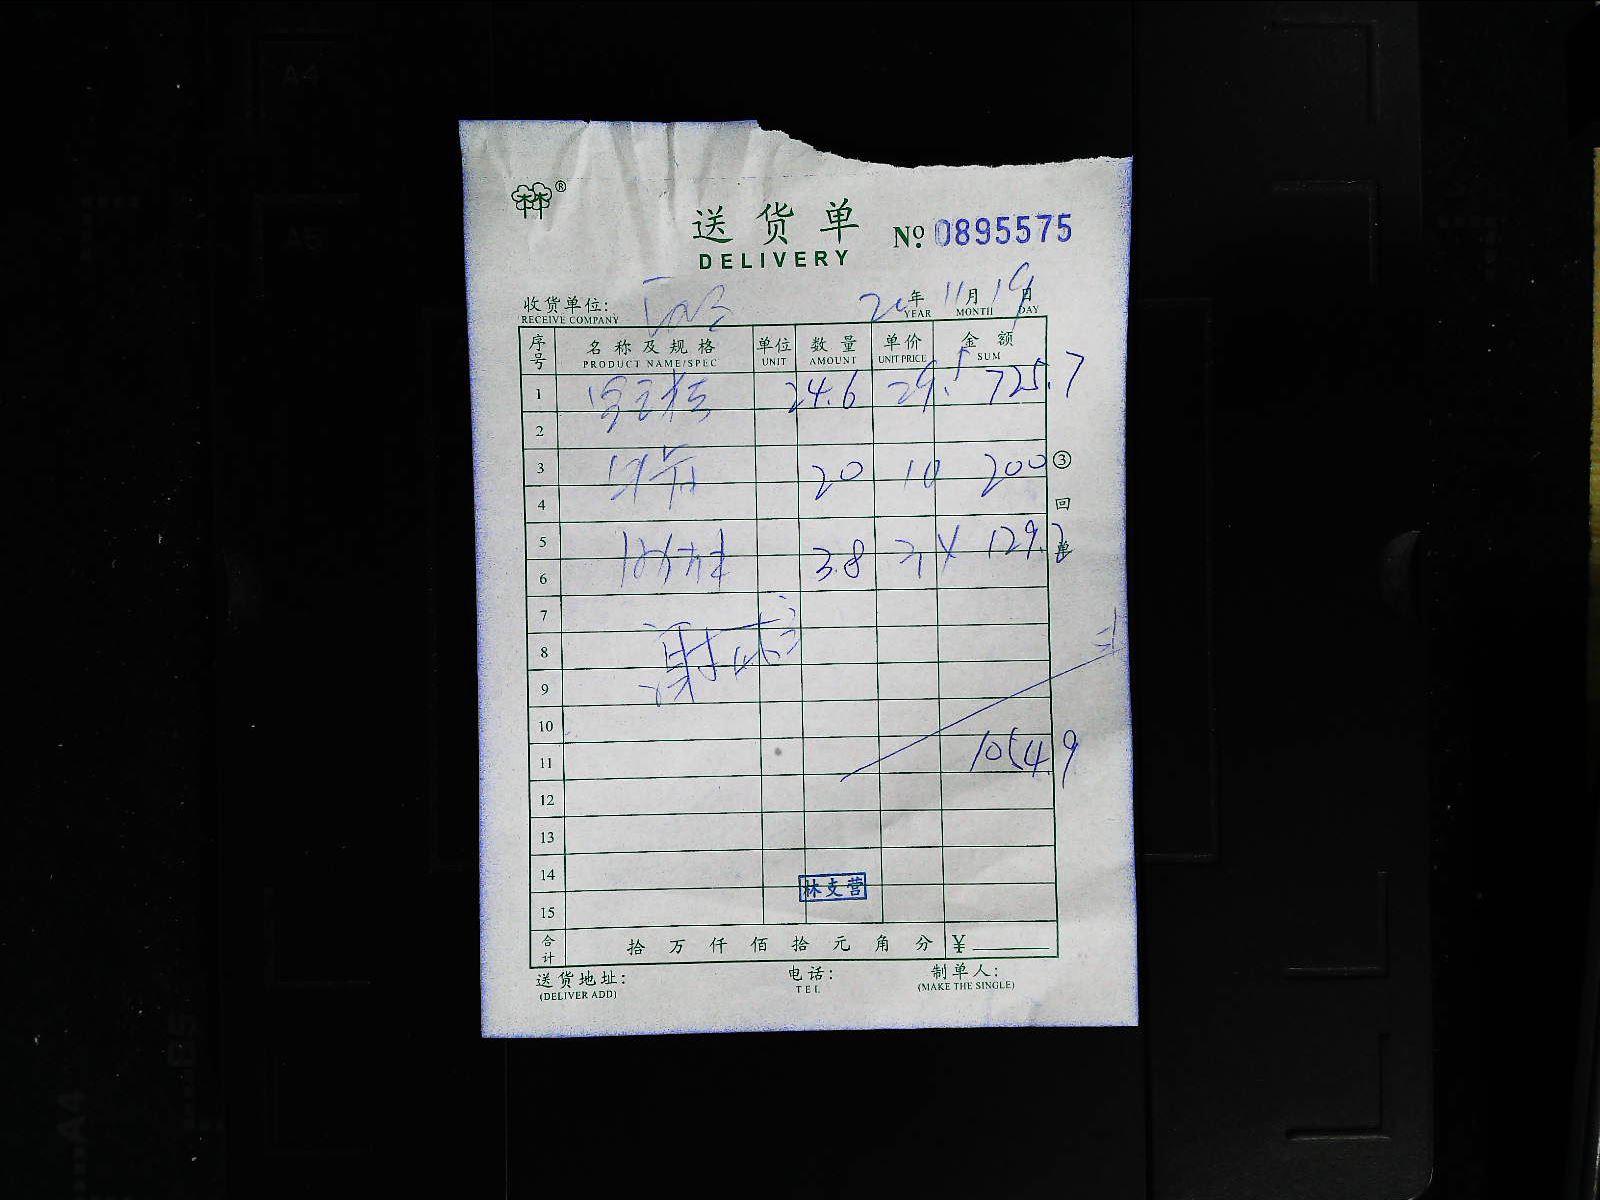 林®
送货单
DELIVERY
No. 0895575
收货单位:
RECEIVE COMPANY
20年11月19日
YEAR MONTH DAY
序号 名称及规格 单位 数量 单价 金额
PRODUCT NAME/SPEC UNIT AMOUNT UNIT PRICE SUM
1 24.6 29.5 725.7
2
3 20 10 200
4
5 3.8 34 129.2
6
7
8 谢
9
10
11 1054.9
12
13
14
15
林支营
合计 拾万仟佰拾元角分 ¥
③回单
送货地址:
(DELIVER ADD)
电话:
TEL
制单人:
(MAKE THE SINGLE)
A4
A5